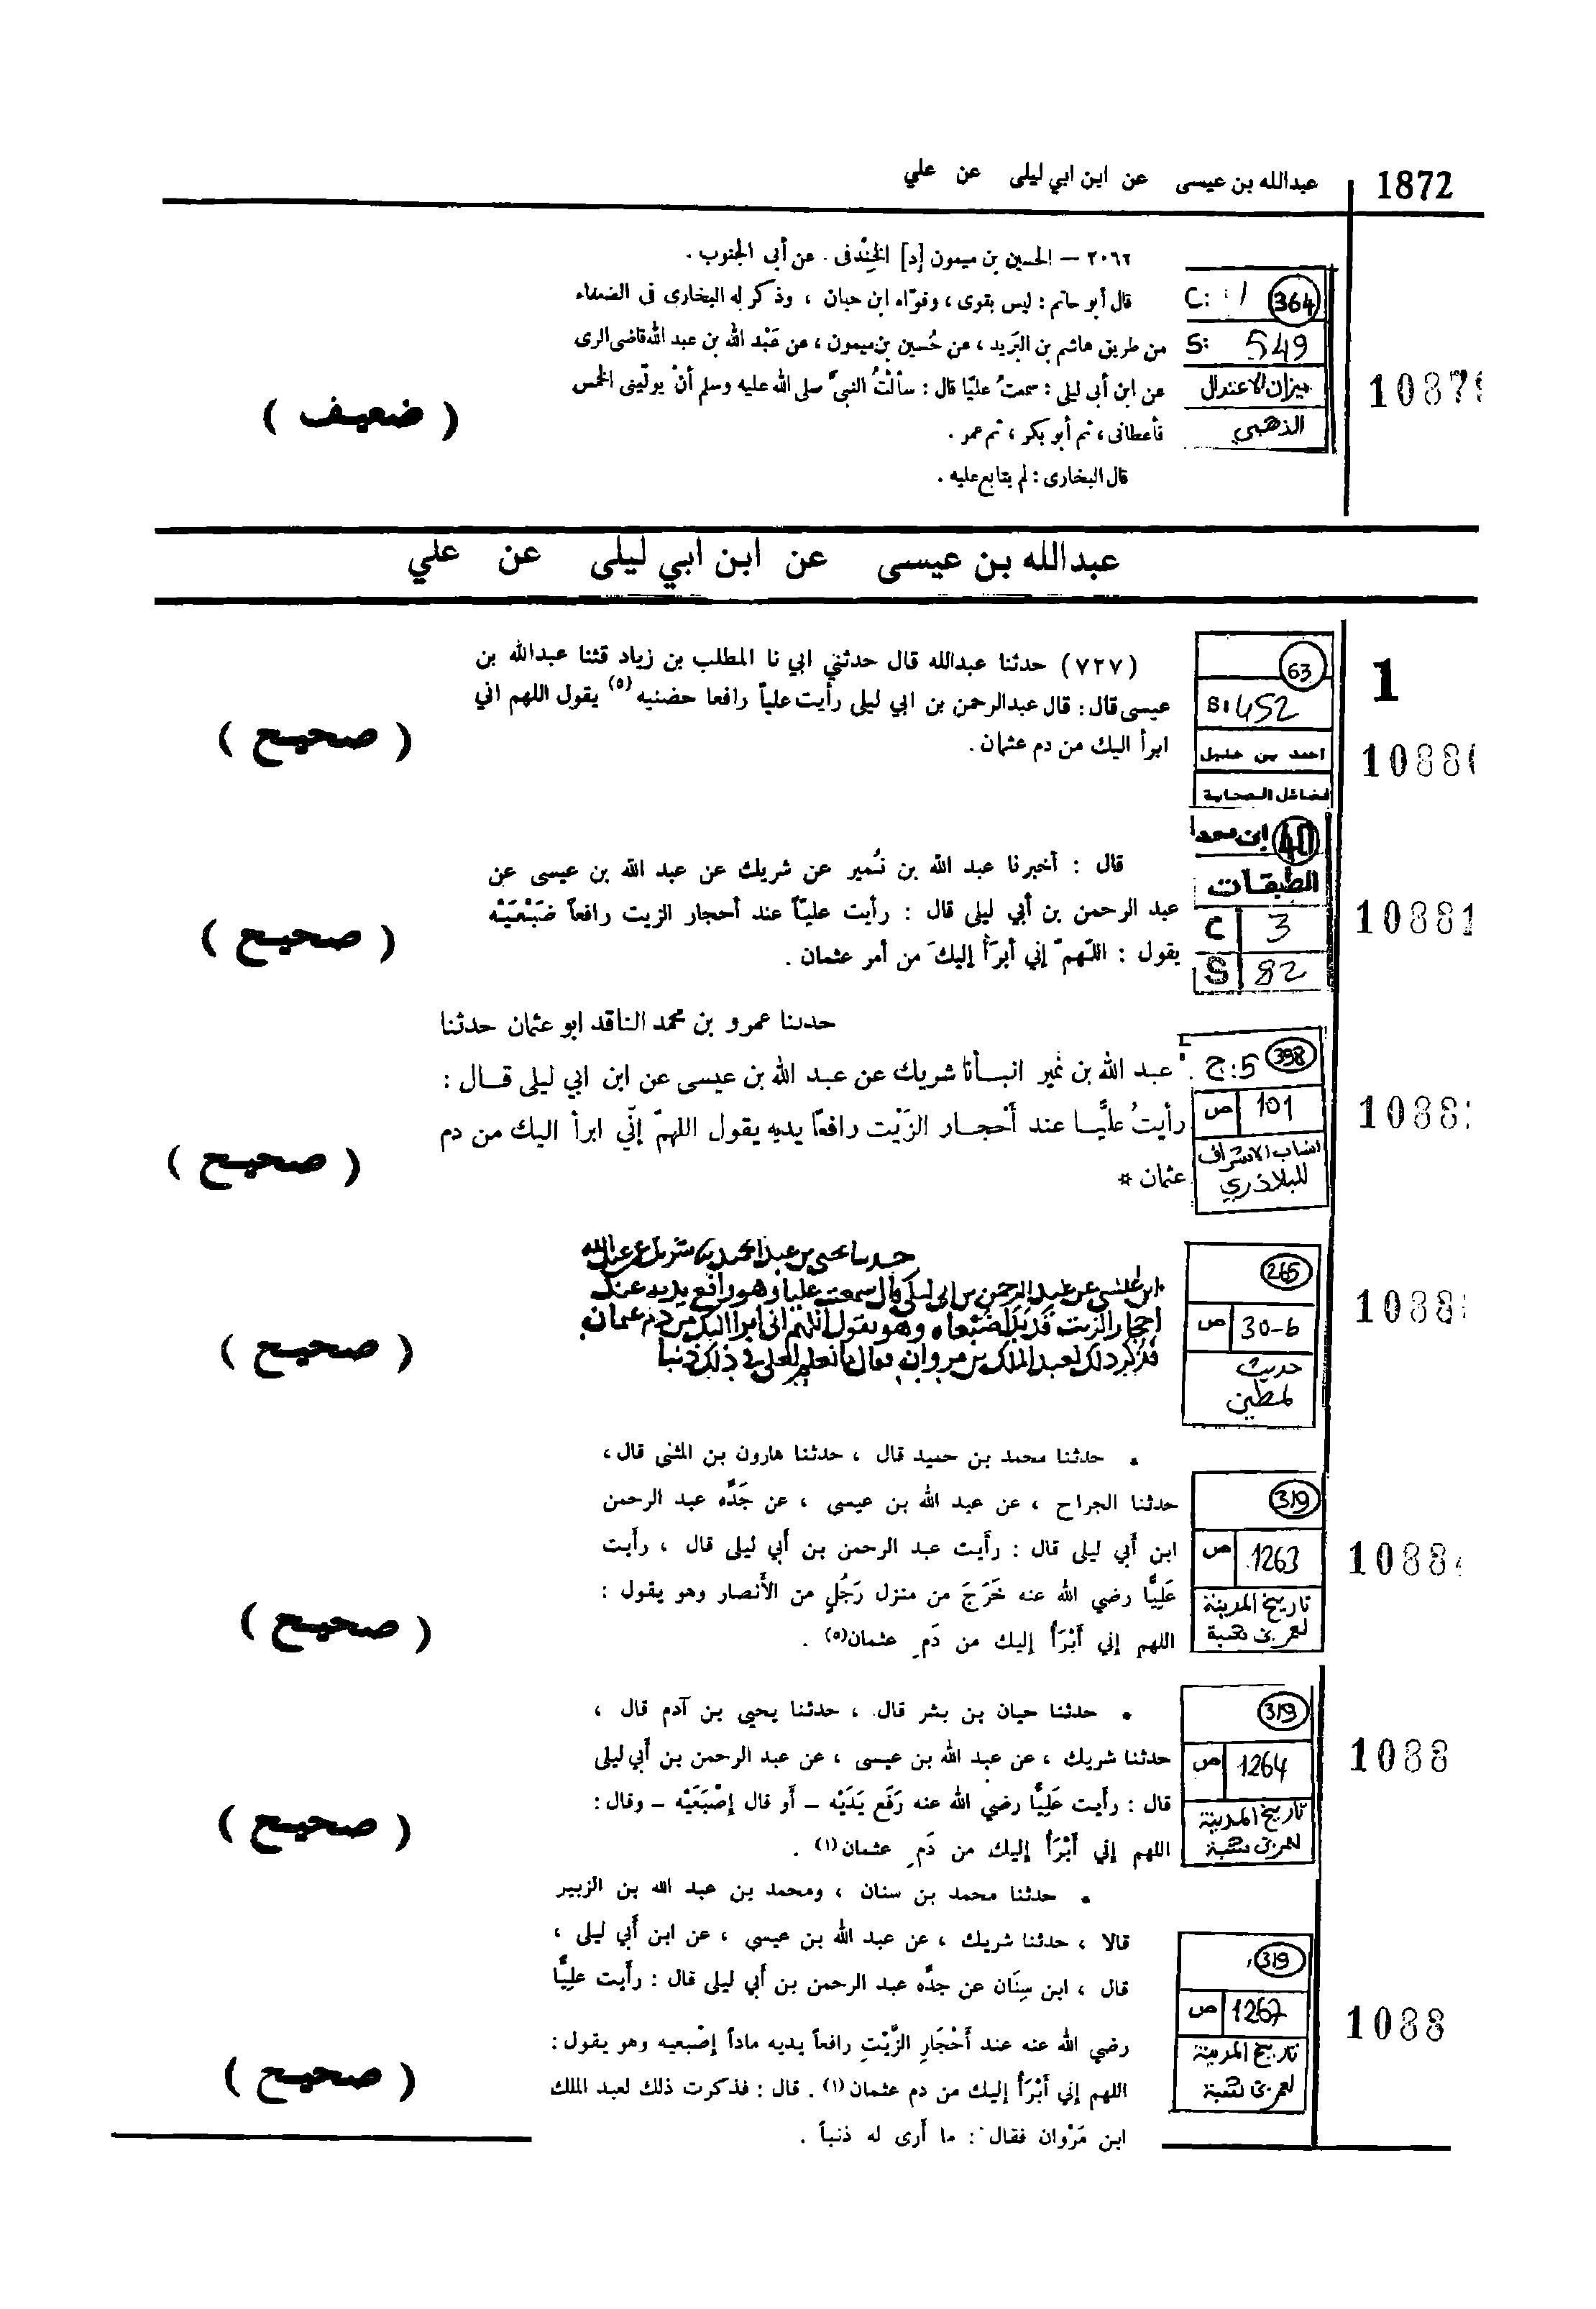 1872
عبدالله بن عيسى عن ابن ابي ليلى عن علي
٢٠٦٢ – الحسين بن ميمون [د] الخِنْدفى . عن أبى الجنوب .
قال أبو حاتم : ليس بقوى ، وقوّاه ابن حبان ، وذكر له البخارى فى الضعفاء
من طريق هاشم بن البَرِيد ، عن حُسين بن ميمون ، عن عَبْد الله بن عبد الله قاضى الرى
عن ابن أبى ليلى : سمعتُ عليّا قال : سألتُ النبىَّ صلى الله عليه وسلم أنْ يولّينى الخمس
فأعطانى ، ثم أبو بكر ، ثم عمر .
قال البخارى : لم يتابع عليه .
C: 1 364
S: 549
ميزان الاعتدال
الذهبي
( ضعيف )
عبدالله بن عيسى عن ابن ابي ليلى عن علي
1
(٧٢٧) حدثنا عبدالله قال حدثني ابي نا المطلب بن زياد قثنا عبدالله بن
عيسى قال : قال عبدالرحمن بن ابي ليلى رأيت علياً رافعا حضنيه (٥) يقول اللهم اني
ابرأ اليك من دم عثمان .
63
S: 452
احمد بن حنبل
فضائل الصحابة
( صحيح )
قال : أخبرنا عبد الله بن نُمير عن شريك عن عبد الله بن عيسى عن
عبد الرحمن بن أبي ليلى قال : رأيت عليّاً عند أحجار الزيت رافعاً ضَبْعَيْه
يقول : اللّهمّ إني أبرَأُ إليكَ من أمر عثمان .
40 ابن سعد
الطبقات
C 3
S 82
10881
( صحيح )
حدثنا عمرو بن محمد الناقد ابو عثمان حدثنا
عبد الله بن نمير انبـأنا شريك عن عبد الله بن عيسى عن ابن ابي ليلى قـال :
رأيتُ عليًّـا عند أَحْجـار الزَيْت رافعًا يديه يقول اللهمّ إنّي ابرأ اليك من دم
عثمان *
ج: 5 398
ص 101
انساب الاشراف
للبلاذري
( صحيح )
حدثنا يحيى بن عبد الحميد نا شريك عن عبد الله
ابن عيسى عن عبد الرحمن بن ابي ليلى قال سمعت عليا وهو رافع يديه عند
احجار الزيت قد بدا ضبعاه وهو يقول اللهم اني ابرا اليك من دم عثمان
فذكر ذلك لعبد الملك بن مروان فقال ما نعلم لعلي في ذلك ذنبا
265
ص 30-6
حديث
لمطين
( صحيح )
• حدثنا محمد بن حميد قال ، حدثنا هارون بن المثنى قال ،
حدثنا الجراح ، عن عبد الله بن عيسى ، عن جَدّه عبد الرحمن
ابن أبي ليلى قال : رأيت عبد الرحمن بن أبي ليلى قال ، رأيت
عَلِيًّا رضي الله عنه خَرَجَ من منزل رَجُلٍ من الأنصار وهو يقول :
اللهم إني أَبْرَأُ إليك من دَمِ عثمان(٥) .
319
ص 1263
تاريخ المدينة
لعمر بن شبة
( صحيح )
• حدثنا حيان بن بشر قال ، حدثنا يحيى بن آدم قال ،
حدثنا شريك ، عن عبد الله بن عيسى ، عن عبد الرحمن بن أبي ليلى
قال : رأيت عَلِيًّا رضي الله عنه رَفَع يَدَيْه – أو قال إصْبَعَيْه – وقال :
اللهم إني أَبْرَأُ إليك من دَمِ عثمان(١) .
319
ص 1264
تاريخ المدينة
لعمر بن شبة
( صحيح )
• حدثنا محمد بن سنان ، ومحمد بن عبد الله بن الزبير
قالا ، حدثنا شريك ، عن عبد الله بن عيسى ، عن ابن أبي ليلى ،
قال ، ابن سِنَان عن جدّه عبد الرحمن بن أبي ليلى قال : رأيت عليًّا
رضي الله عنه عند أَحْجَارِ الزَّيْتِ رافعاً يديه ماداً إصْبعيه وهو يقول :
اللهم إني أَبْرَأُ إليك من دم عثمان(١) . قال : فذكرت ذلك لعبد الملك
ابن مَرْوان فقال : ما أرى له ذنباً .
319
ص 1267
تاريخ المدينة
لعمر بن شبة
( صحيح )